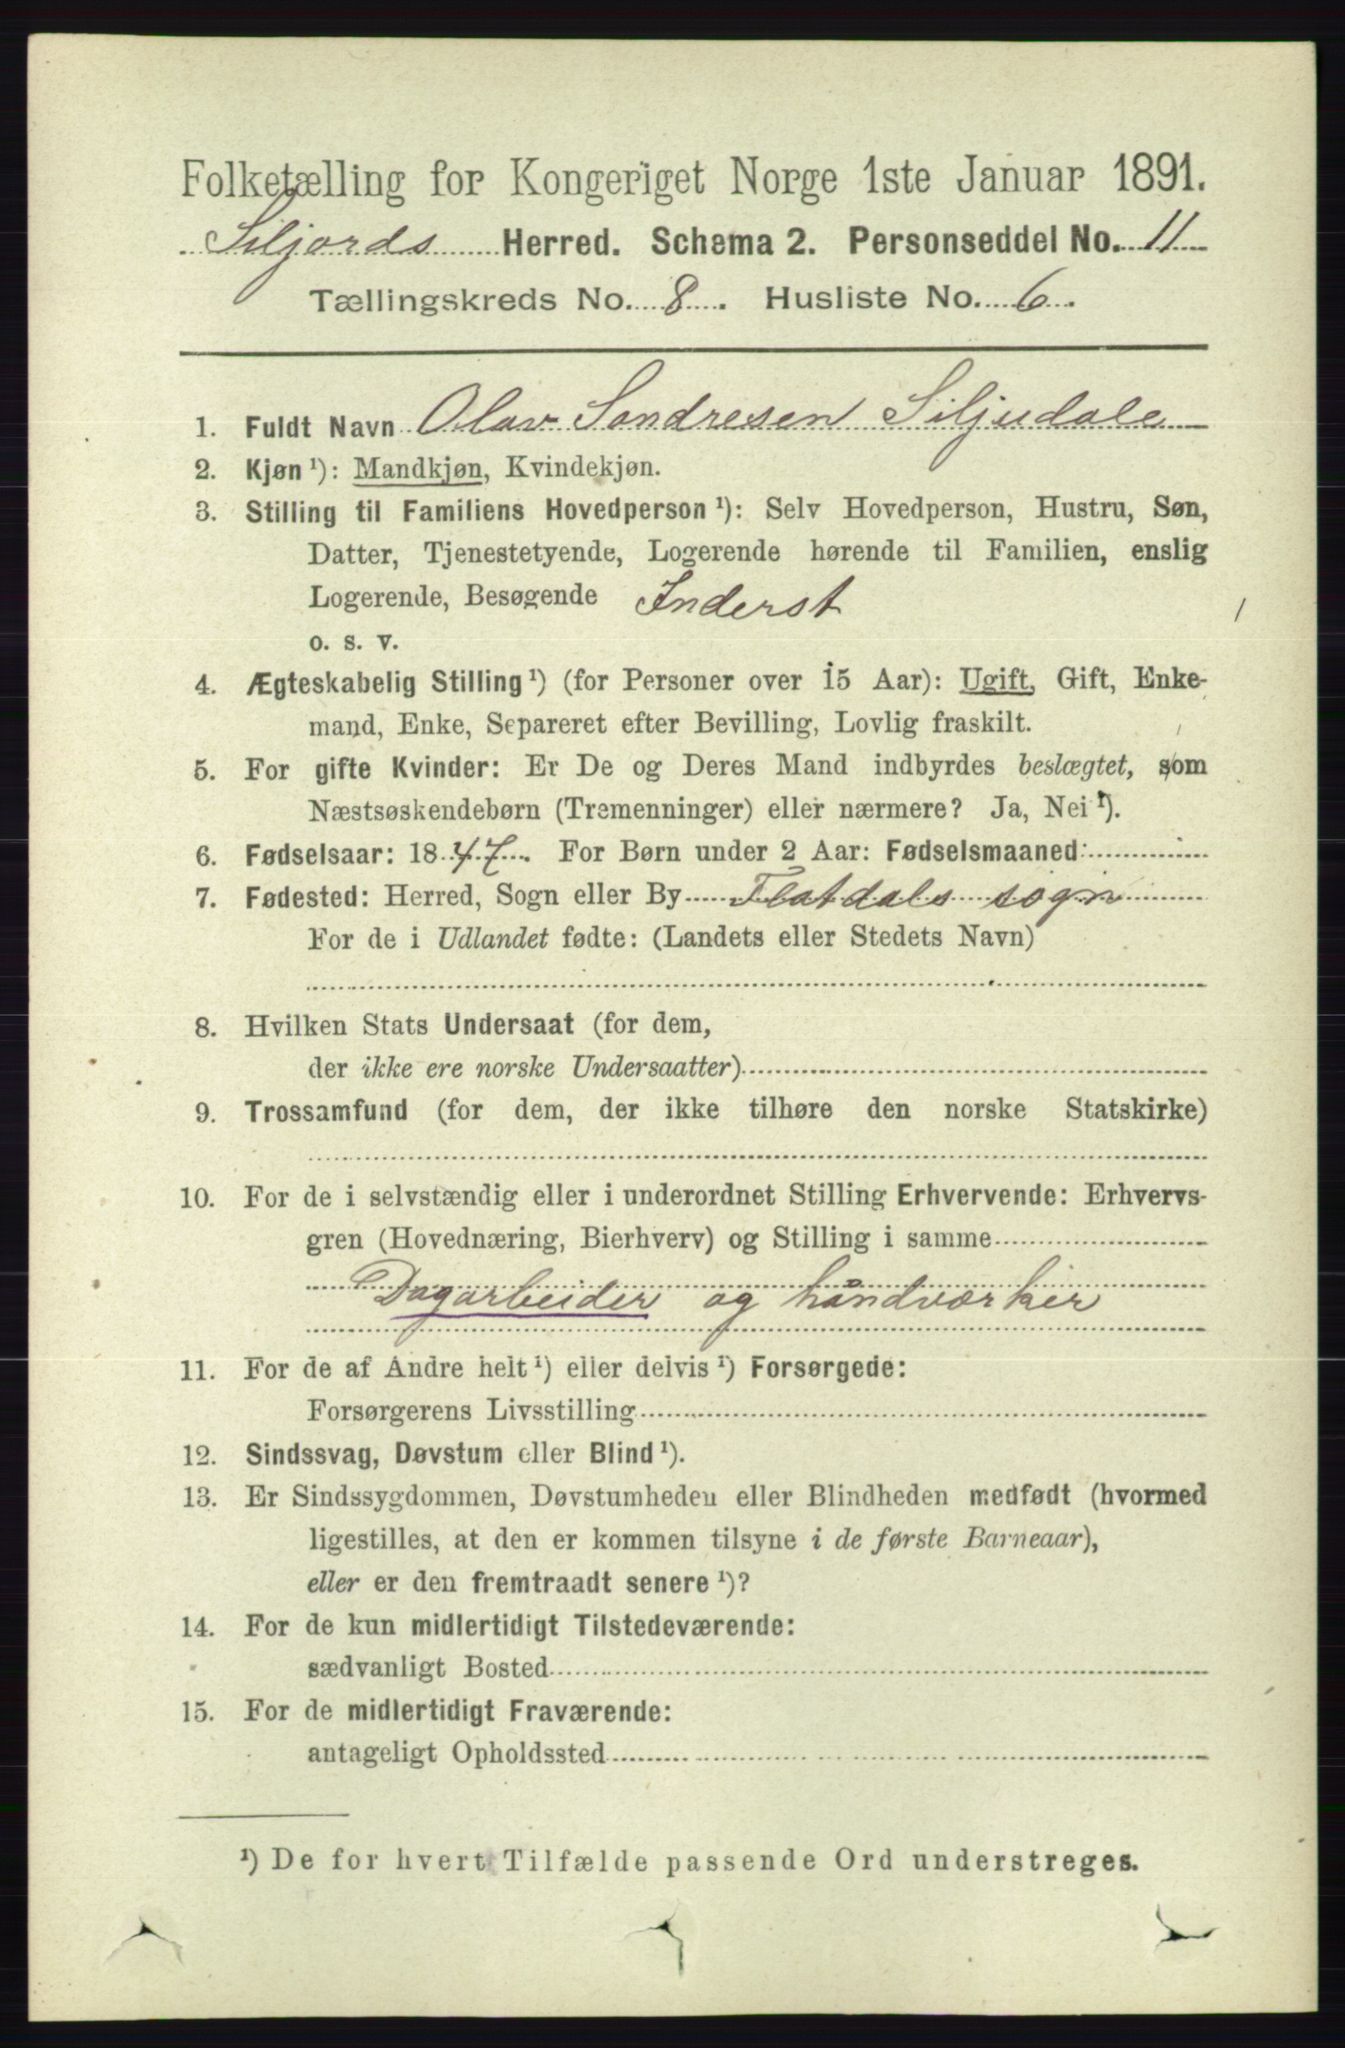 Folketælling for Kongeriget Norge 1ste Januar 1891.
Siljords Herred. Schema 2. Personseddel No. 11
Tællingskreds No. 8. Husliste No. 6.
1. Fuldt Navn Olav Sondresen Siljudale
2. Kjøn ¹): Mandkjøn, Kvindekjøn.
3. Stilling til Familiens Hovedperson ¹): Selv Hovedperson, Hustru, Søn,
Datter, Tjenestetyende, Logerende hørende til Familien, enslig
Logerende, Besøgende Inderst
o. s. v.
4. Ægteskabelig Stilling ¹) (for Personer over 15 Aar): Ugift, Gift, Enke-
mand, Enke, Separeret efter Bevilling, Lovlig fraskilt.
5. For gifte Kvinder: Er De og Deres Mand indbyrdes beslægtet, som
Næstsøskendebørn (Tremenninger) eller nærmere? Ja, Nei ¹).
6. Fødselsaar: 1847. For Børn under 2 Aar: Fødselsmaaned:
7. Fødested: Herred, Sogn eller By Flatdals sogn
For de i Udlandet fødte: (Landets eller Stedets Navn)
8. Hvilken Stats Undersaat (for dem,
der ikke ere norske Undersaatter)
9. Trossamfund (for dem, der ikke tilhøre den norske Statskirke)
10. For de i selvstændig eller i underordnet Stilling Erhvervende: Erhvervs-
gren (Hovednæring, Bierhverv) og Stilling i samme
Dagarbeider og håndværker
11. For de af Andre helt ¹) eller delvis ¹) Forsørgede:
Forsørgerens Livsstilling
12. Sindssvag, Døvstum eller Blind ¹).
13. Er Sindssygdommen, Døvstumheden eller Blindheden medfødt (hvormed
ligestilles, at den er kommen tilsyne i de første Barneaar),
eller er den fremtraadt senere ¹)?
14. For de kun midlertidigt Tilstedeværende:
sædvanligt Bosted
15. For de midlertidigt Fraværende:
antageligt Opholdssted
¹) De for hvert Tilfælde passende Ord understreges.